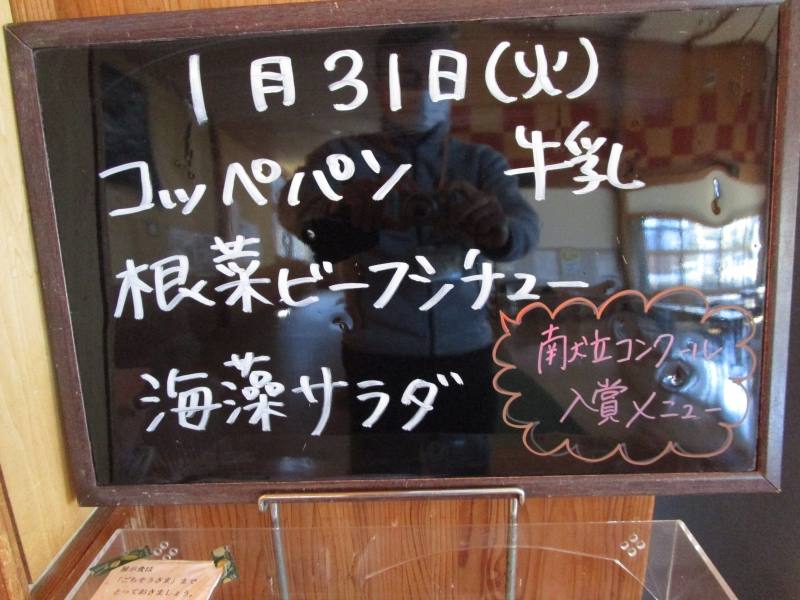 1月31日(火)
コッペパン 牛乳
根菜ビーフシチュー
海藻サラダ
南犬立コンクール
入賞メニュー
展示食は
「ごちそうさま」まで
とっておきましょう。